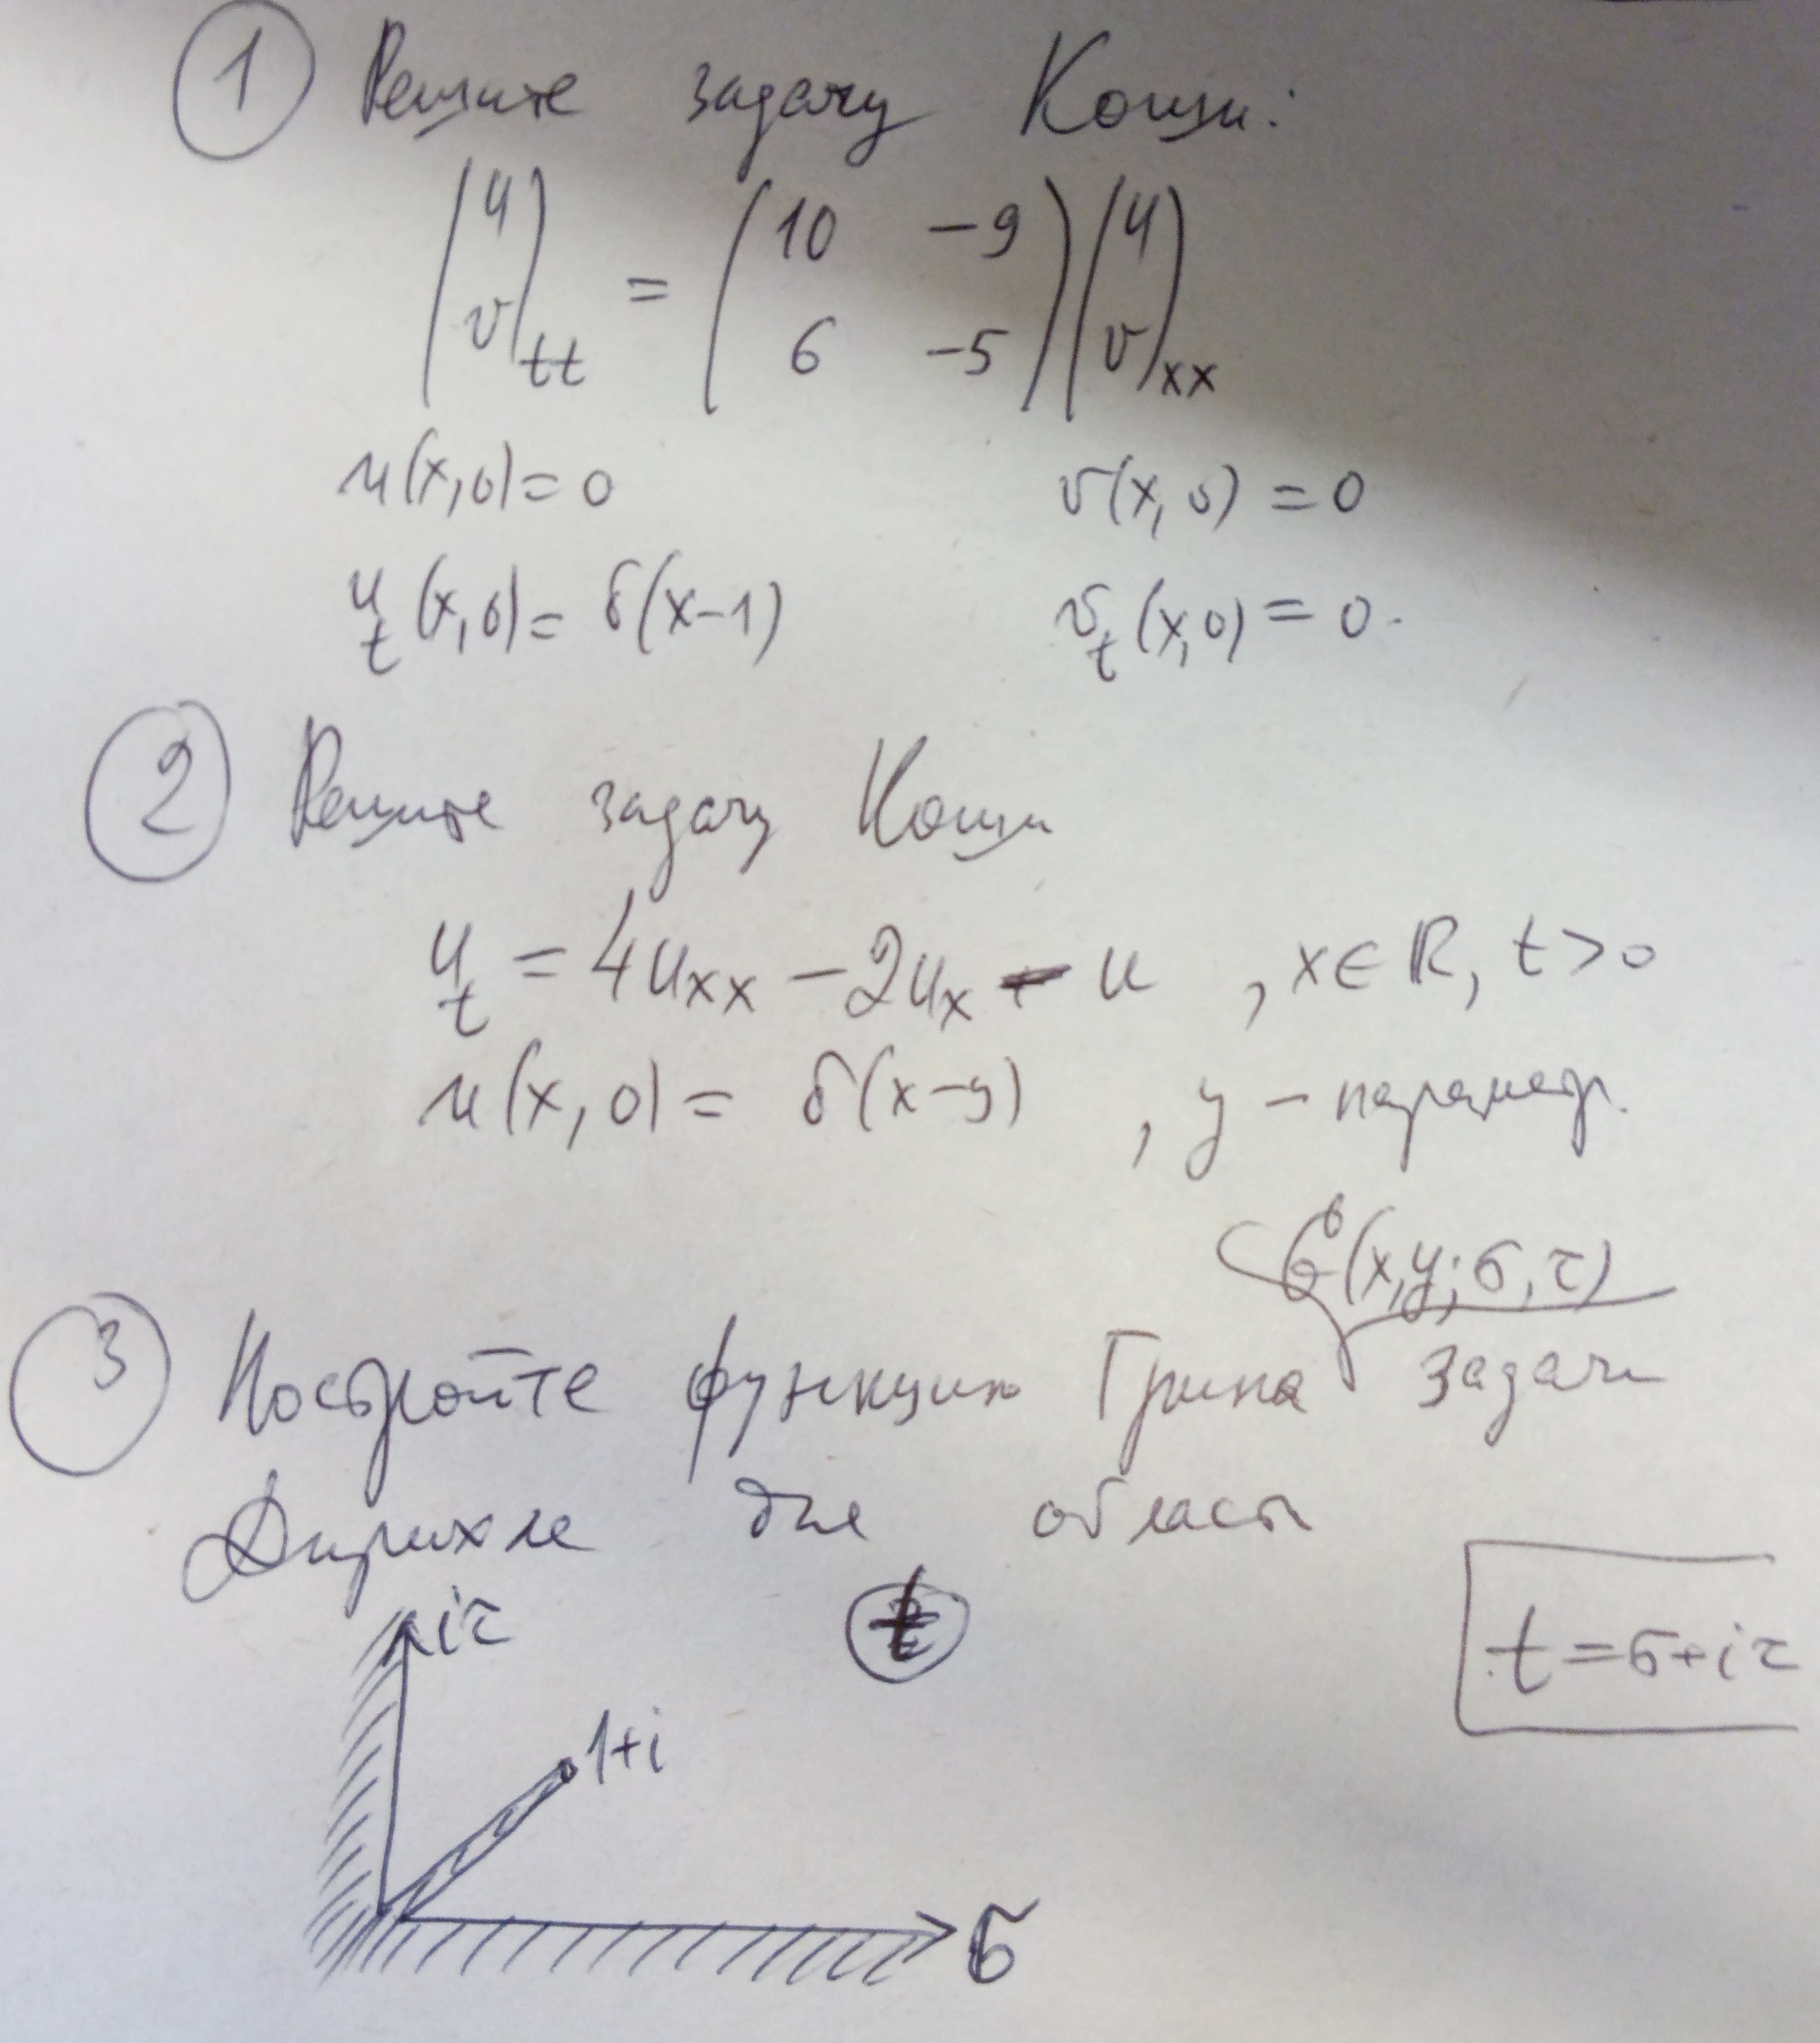 1 Решите задачу Коши:
(u v)tt = (10 -9 6 -5)(u v)xx
u(x,0)=0 v(x,0)=0
ut(x,0)= δ(x-1) vt(x,0)=0.
2 Решите задачу Коши
ut = 4uxx - 2ux - u , x∈ℝ, t>0
u(x,0)= δ(x-y) , y - параметр.
G(x,y;σ,τ)
3 Постройте функцию Грина задачи
Дирихле для области
iτ t
t=σ+iτ
1+i
σ